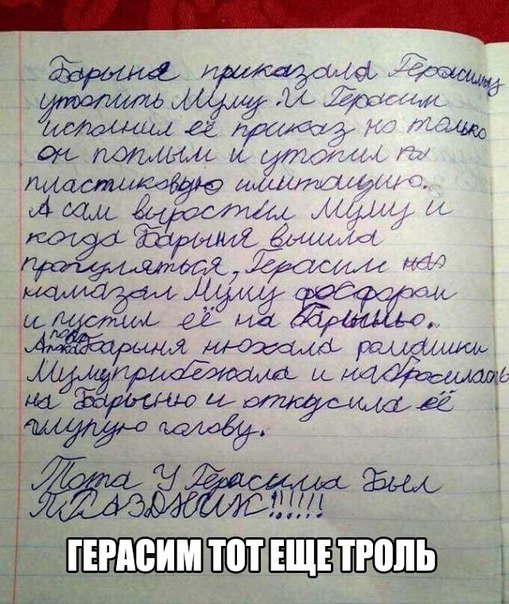 Барыня приказала Герасиму
утопить Муму. И Герасим
исполнил её приказ но только
он поплыл и утопил
пластиковую имитацию.
А сам выростил Муму и
когда Барыня вышла
прогуляться, Герасим
намазал Муму фосфором
и пустил её на Барыню.
пока барыня нюхала ромашки
Муму прибежала и набросилась
на Барыню и откусила её
глупую голову.
У Герасима был
ПРАЗДНИК!!!!!!
ГЕРАСИМ ТОТ ЕЩЕ ТРОЛЬ